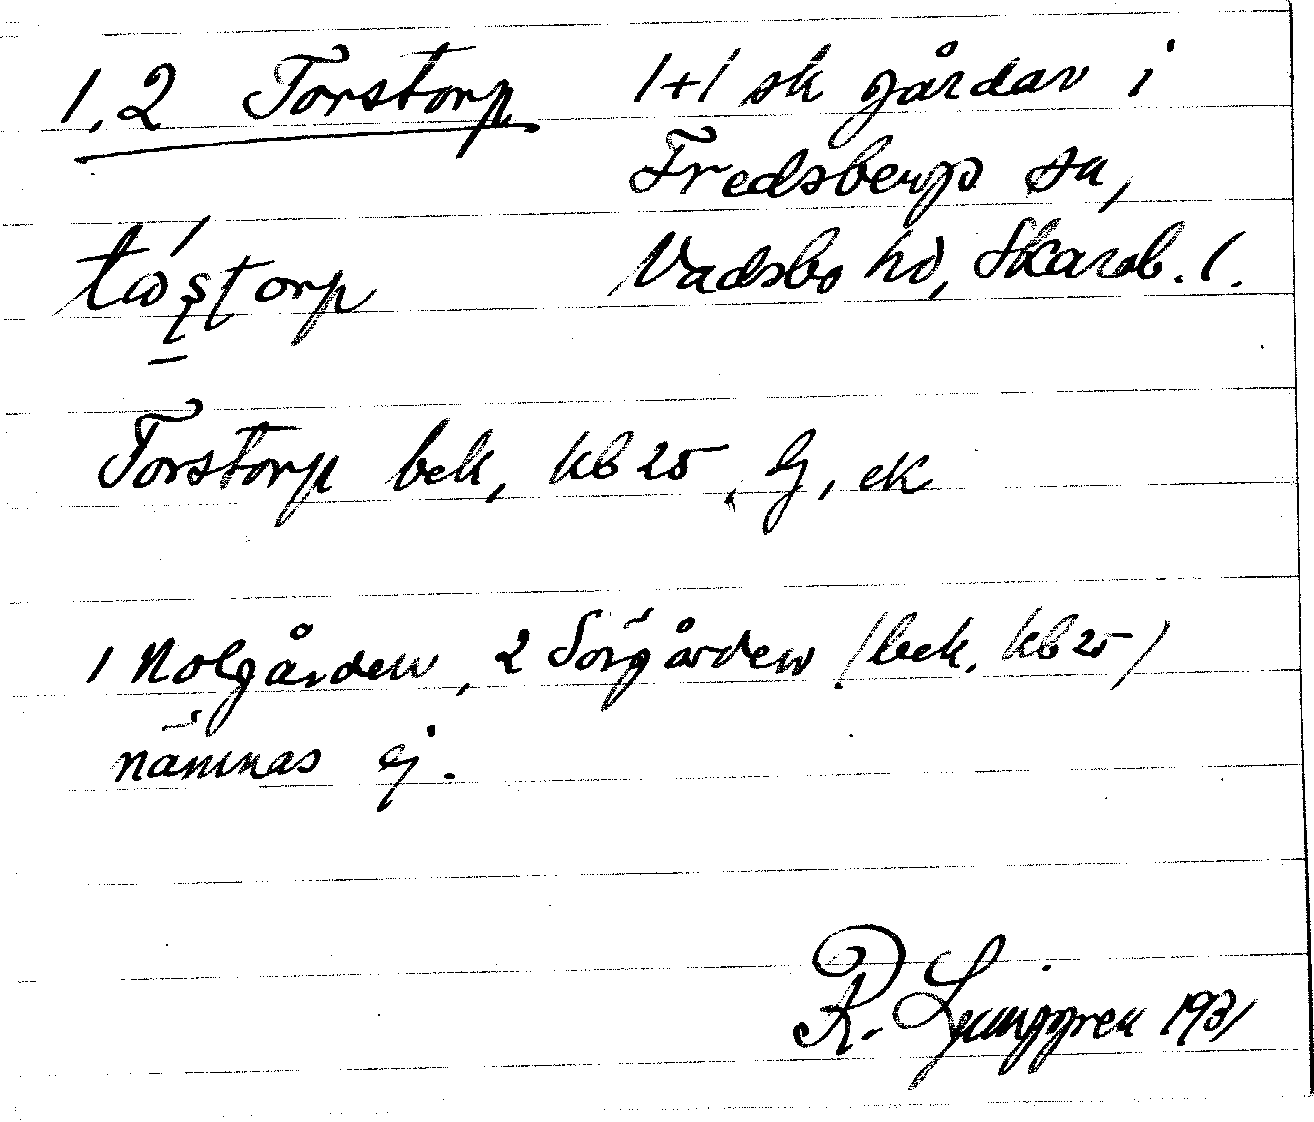 1,2 Torstorp 1+1 sk gårdar i
Fredsbergs sn,
Vadsbo hd, Skarab. l.
tó̱ștorp
Torstorp bek, kb 25, Lj, ek
1 Nolgården, 2 Sörgården (bek. kb 25)
nämnas ej.
R. Ljunggren 1931